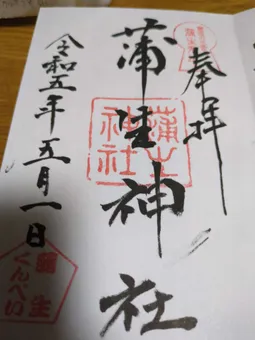 奉拝
蒲生神社
令和五年五月一日
蒲生神社
蒲生
くんぺい